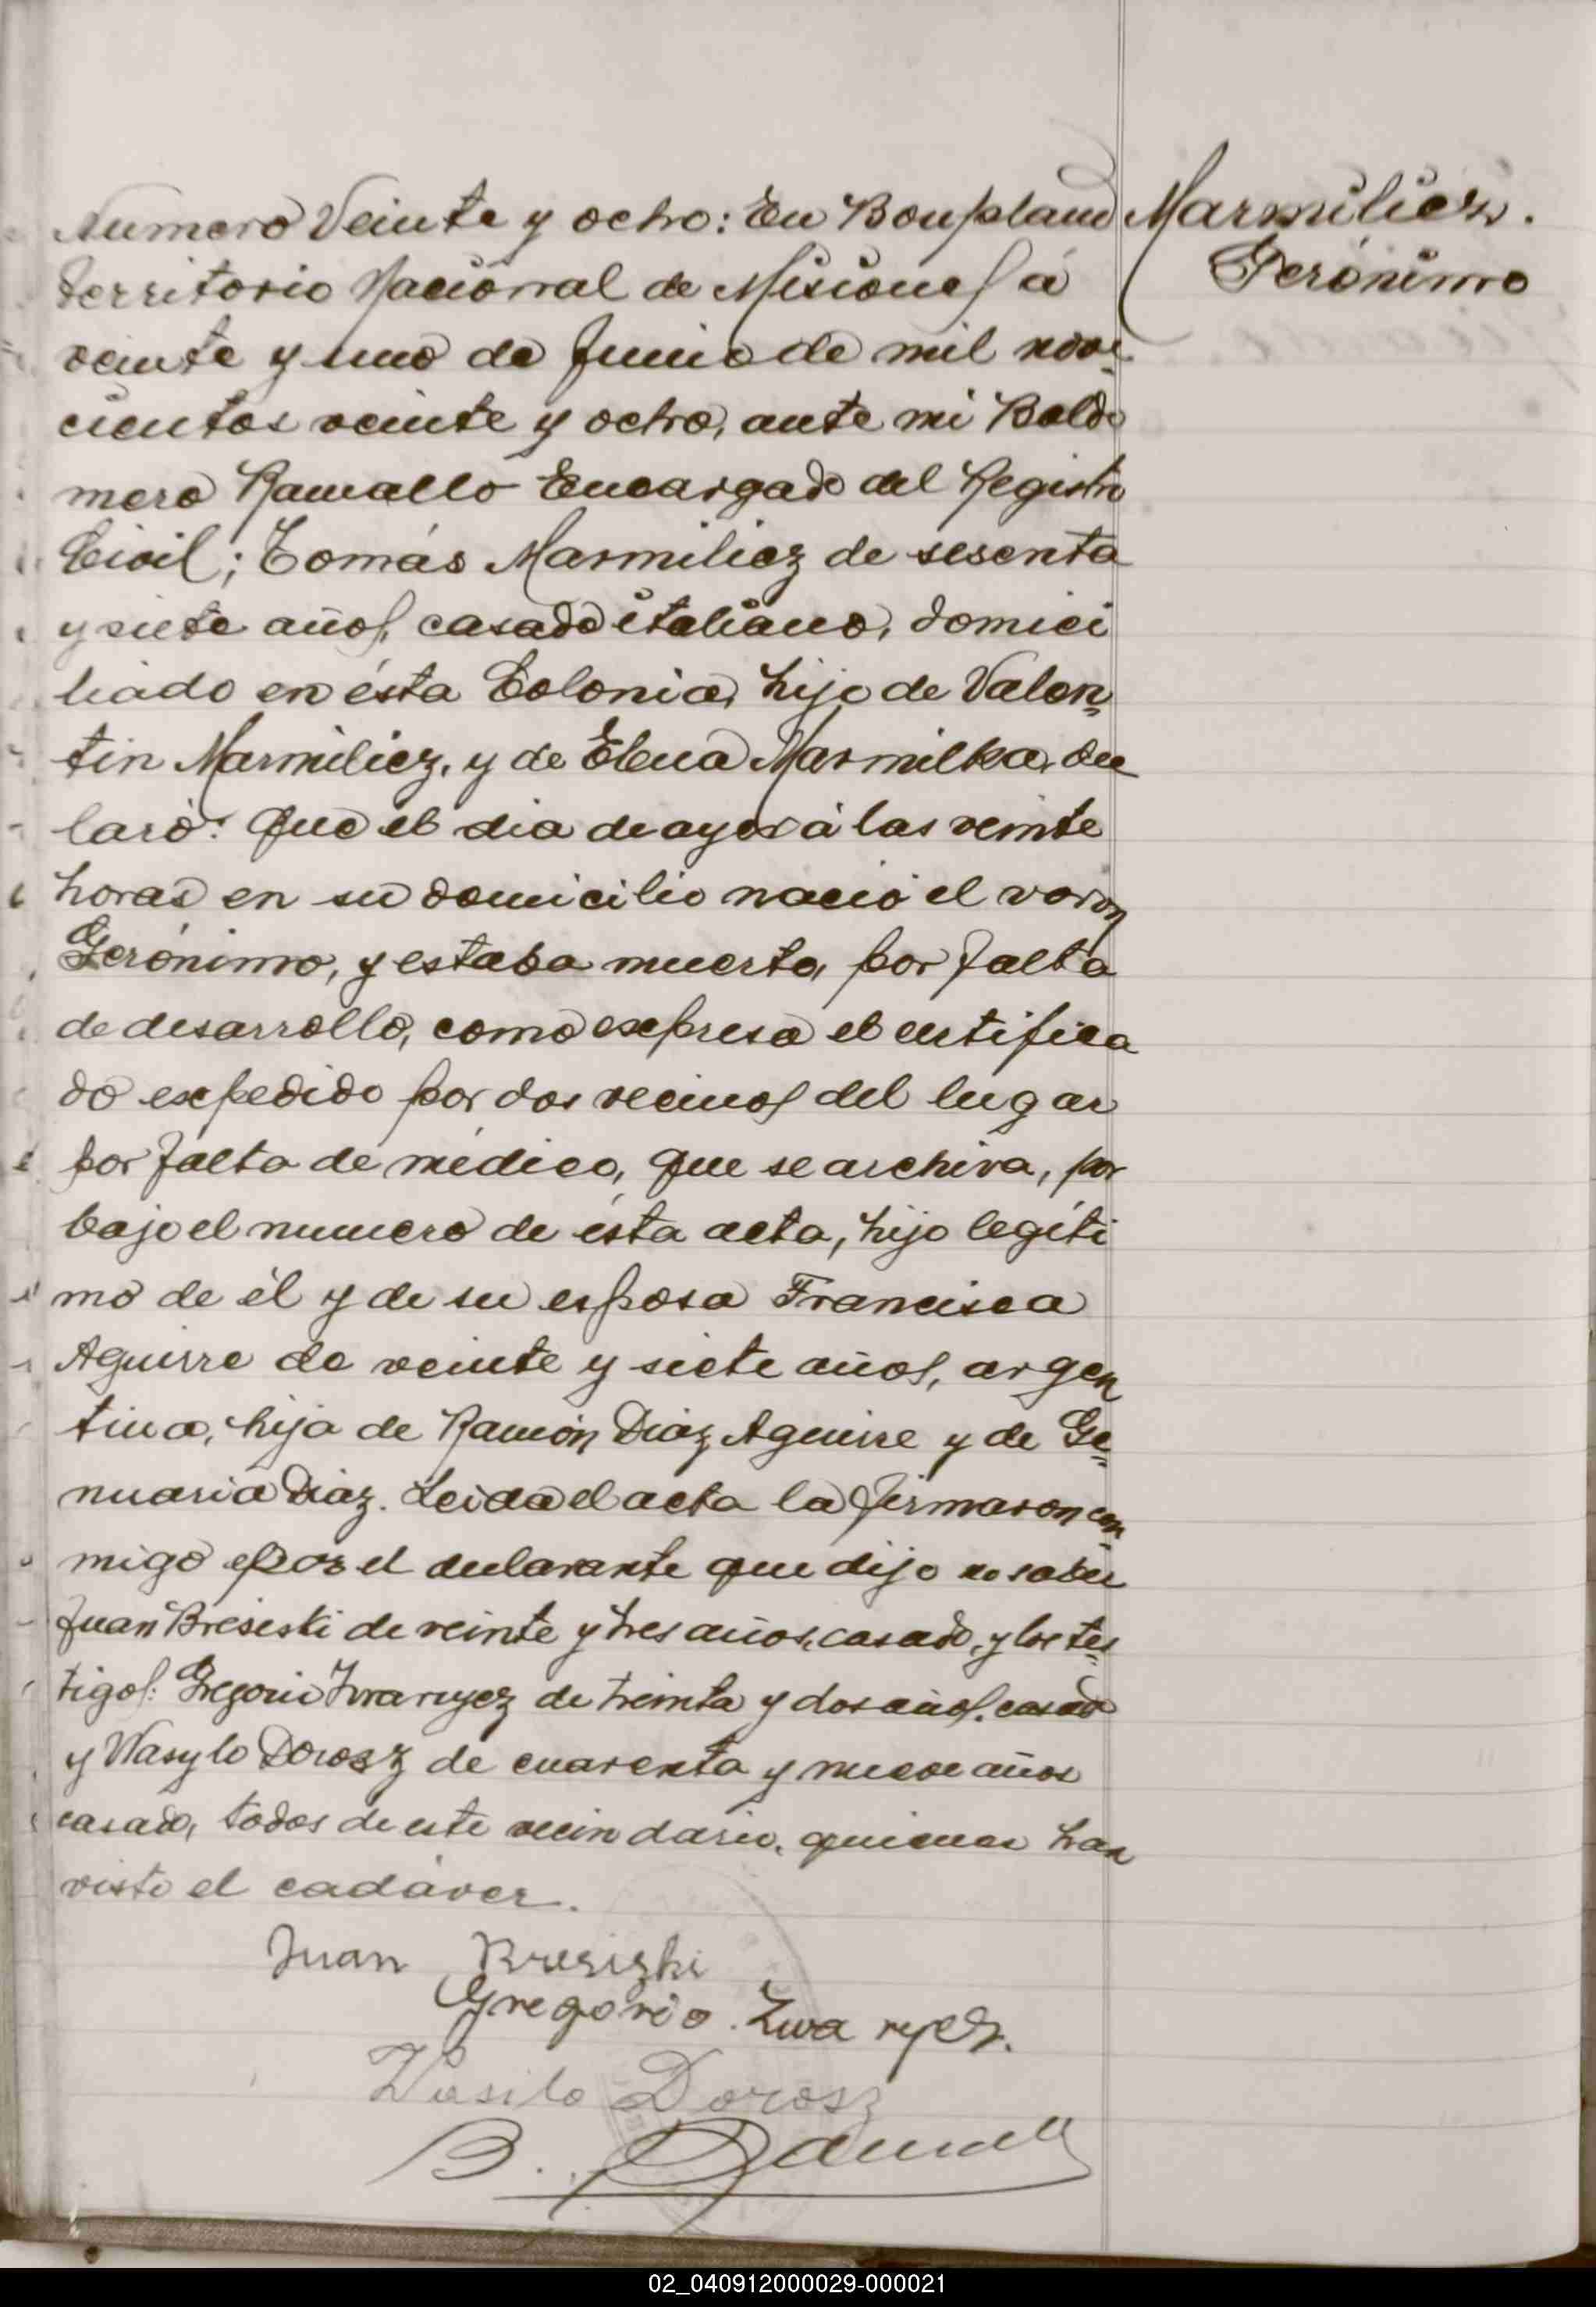 Numero Veinte y ocho: En Bonpland
Territorio Nacional de Misiones á
veinte y uno de Junio de mil nove
cientos veinte y ocho, ante mi Baldo
mero Ramallo Encargado del Registro
Civil; Tomás Marmiliez de sesenta
y siete años, casado italiano, domici
liado en ésta Colonia, hijo de Valen=
tin Marmiliez, y de Elena Marmilka, dec
laró: Que el dia de ayer á las veinte
horas en su domicilio nació el varon
Gerónimo, y estaba muerto, por falta
de desarrollo, como expresa el certifica
do expedido por dos vecinos del lugar
por falta de médico, que se archiva, por
bajo el numero de ésta acta, hijo legíti
mo de él y de su esposa Francisca
Aguirre de veinte y siete años, argen
tina, hija de Ramón Diaz Aguirre y de Ge=
nuaria Diaz. Leida el acta la firmaron con
migo por el declarante que dijo no saber
Juan Bresiski de veinte y tres años, casado, y los tes=
tigos: Gregorio Zwaryez de treinta y dos años, casado
y Wasylo Dorosz de cuarenta y nueve años
casado, todos de este vecindario, quienes han
visto el cadáver.
Juan Bresiski
Gregorio Zwaryez.
Wasilo Dorosz
B. Ramallo
Marmiliez.
Gerónimo
02_040912000029-000021